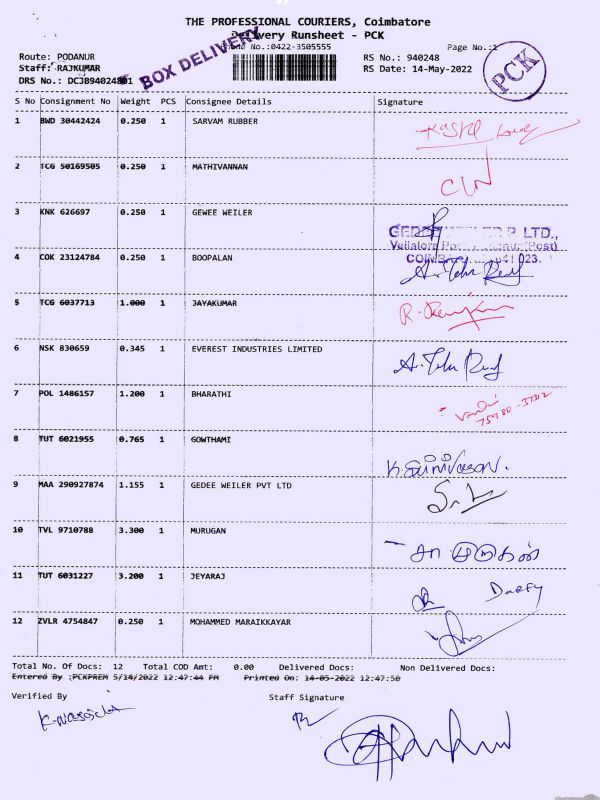 THE PROFESSIONAL COURIERS, Coimbatore
Delivery Runsheet - PCK
Phone No.:0422-3505555
Page No.:1
BOX DELIVERY
PCK
Route: PODANUR
RS No.: 940248
Staff: RAJKUMAR
RS Date: 14-May-2022
DRS No.: DCJB94024801
S No Consignment No Weight PCS Consignee Details Signature
1 BWD 30442424 0.250 1 SARVAM RUBBER
2 TCG 50169505 0.250 1 MATHIVANNAN
3 KNK 626697 0.250 1 GEWEE WEILER
4 COK 23124784 0.250 1 BOOPALAN
5 TCG 6037713 1.000 1 JAYAKUMAR
6 NSK 830659 0.345 1 EVEREST INDUSTRIES LIMITED
7 POL 1486157 1.200 1 BHARATHI
75980-37312
8 TUT 6021955 0.765 1 GOWTHAMI
K. Srinivasan.
9 MAA 290927874 1.155 1 GEDEE WEILER PVT LTD
10 TVL 9710788 3.300 1 MURUGAN
11 TUT 6031227 3.200 1 JEYARAJ
12 ZVLR 4754847 0.250 1 MOHAMMED MARAIKKAYAR
Total No. Of Docs: 12 Total COD Amt: 0.00 Delivered Docs: Non Delivered Docs:
Entered By :PCKPREM 5/14/2022 12:47:44 PM Printed On: 14-05-2022 12:47:50
Verified By Staff Signature